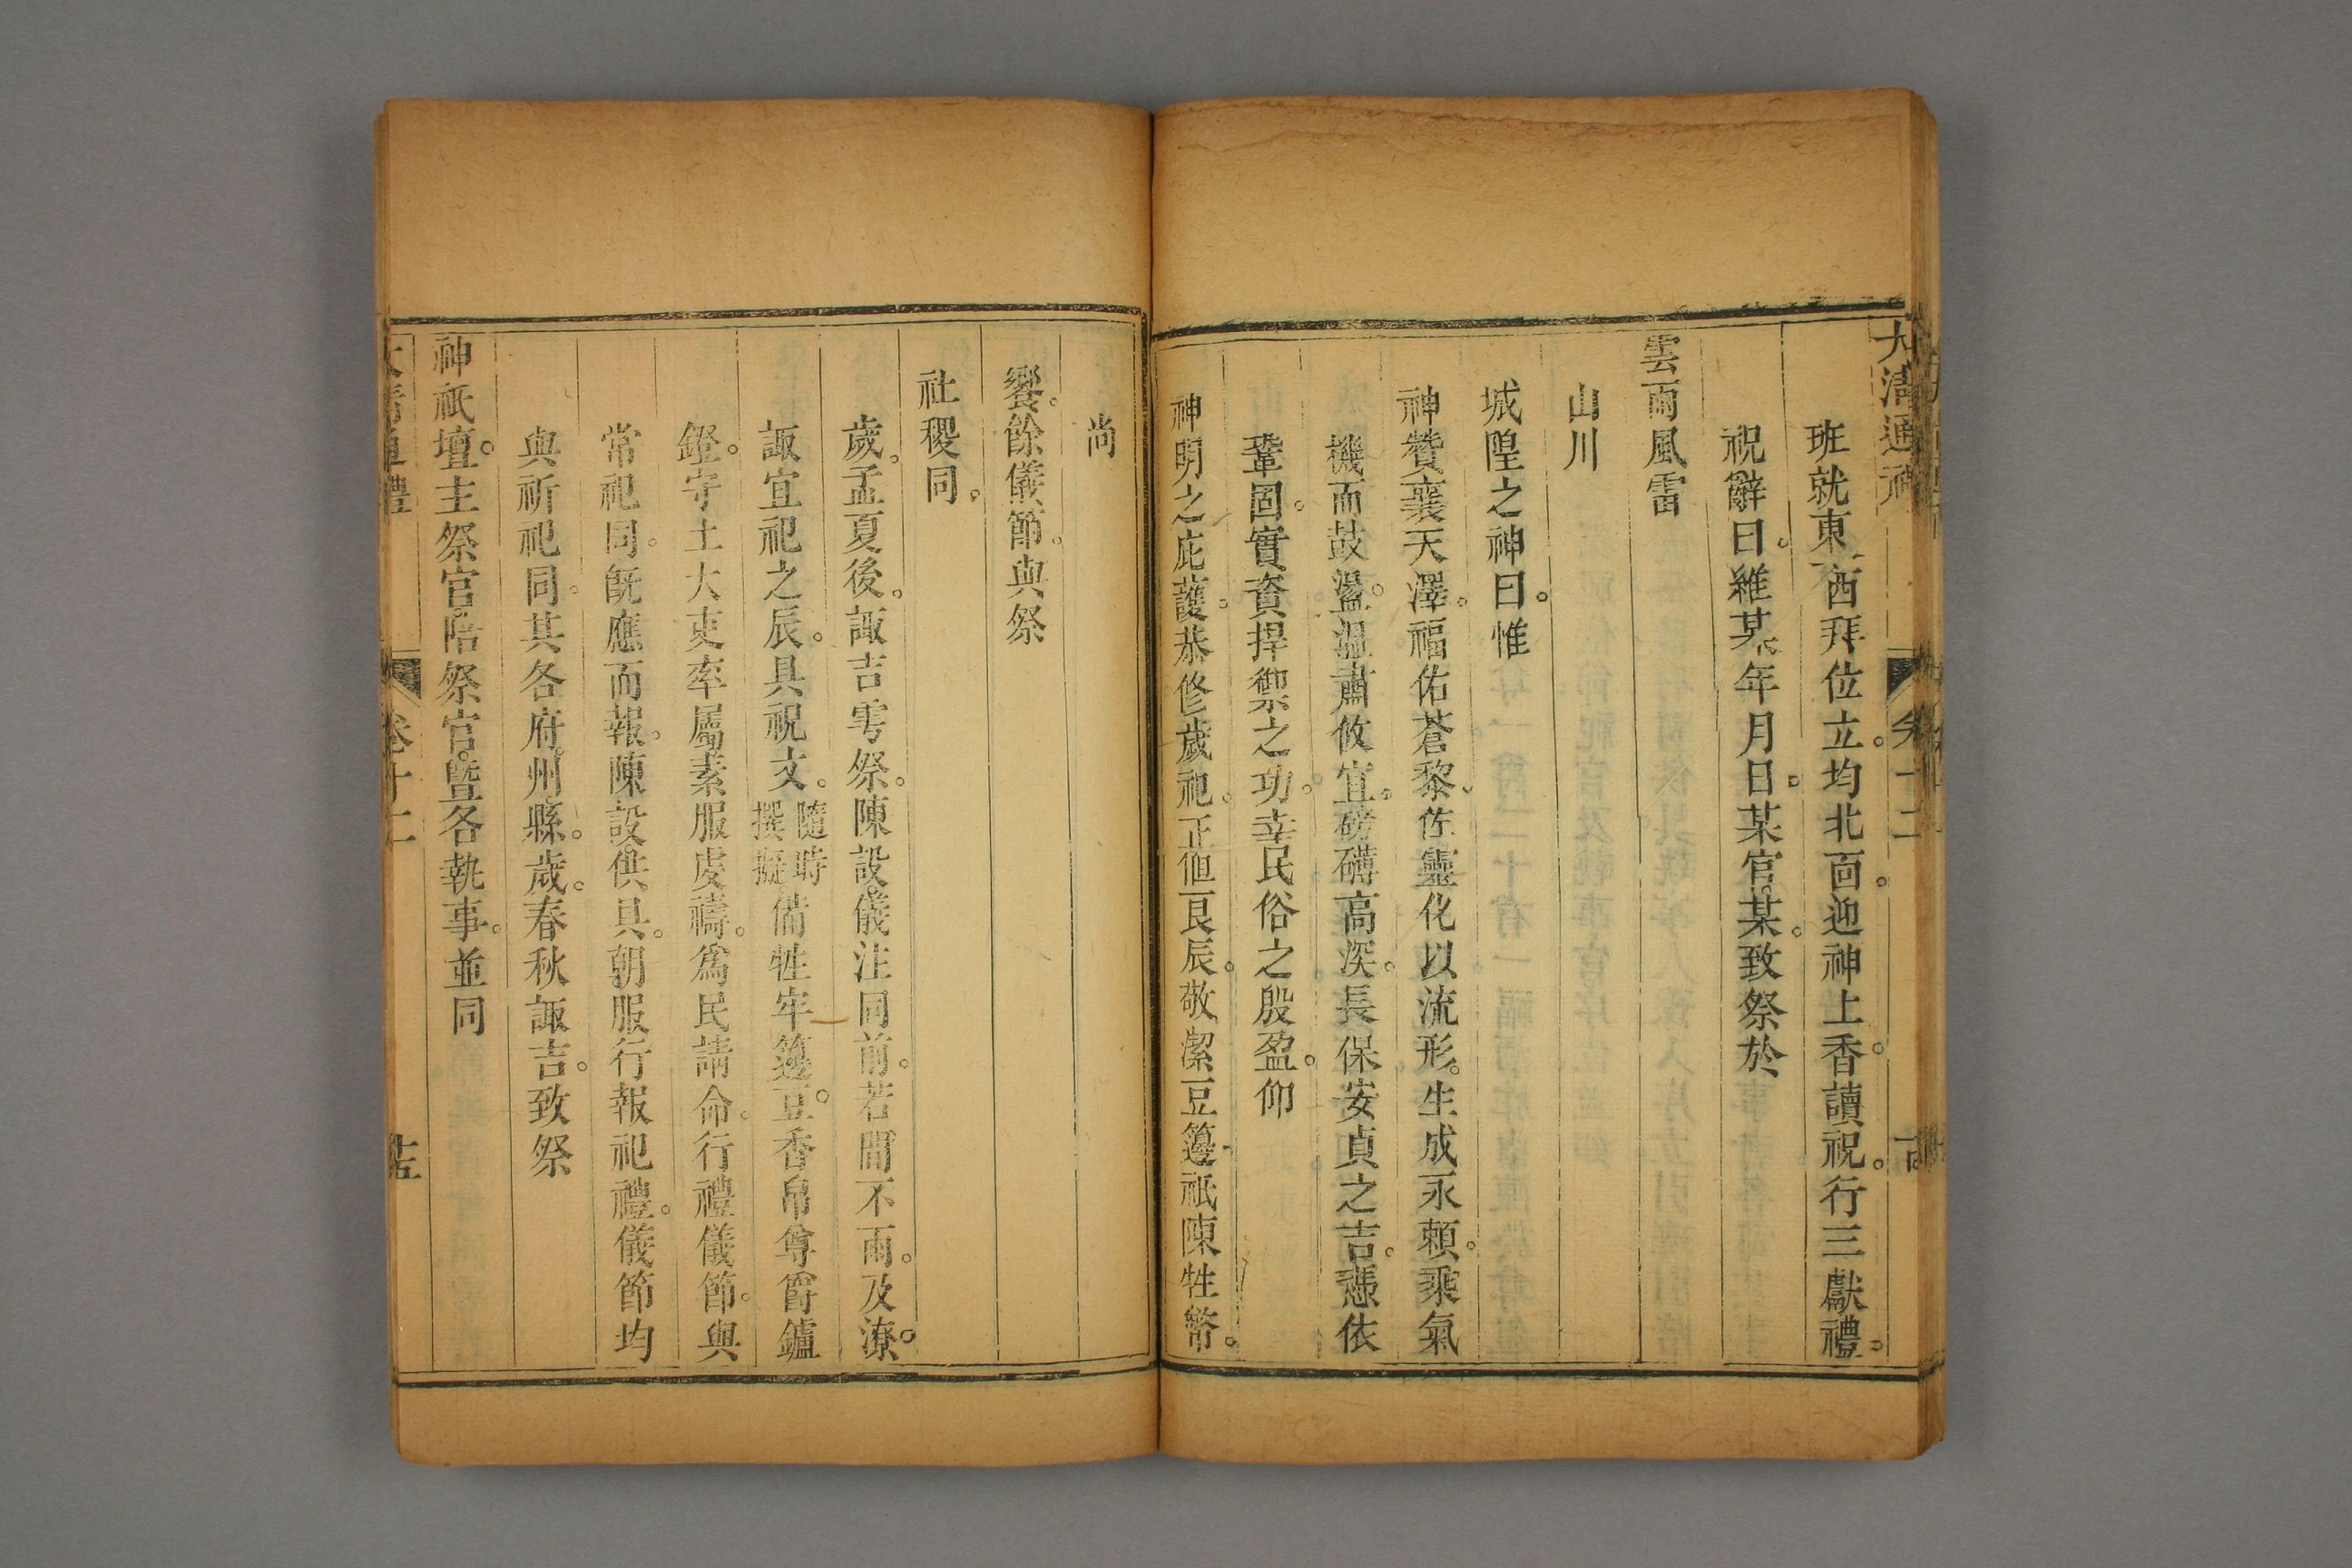 大清通禮 卷十二 十四
班就東西拜位立。均北面。迎神上香。讀祝。行三獻禮。
祝辭曰。維某年月日。某官某。致祭於
雲雨風雷
山川
城隍之神曰。惟
神贊襄天澤。福佑蒼黎。佐靈化以流形。生成永賴。乘氣
機而鼓盪。溫肅攸宜。磅礴高深。長保安貞之吉。憑依
鞏固。實資捍禦之功。幸民俗之殷盈。仰
神明之庇護。恭修歲祀。正值良辰。敬潔豆籩。祇陳牲幣。
尚
饗。餘儀節。與祭
社稷同。
歲。孟夏後。諏吉雩祭。陳設儀注同前。若間不雨。及潦。
諏宜祀之辰。具祝文。隨時撰擬備牲牢籩豆。香帛尊爵鑪
鐙。守土大吏率屬素服虔禱。爲民請命。行禮儀節。與
常祀同。旣應而報。陳設供具。朝服行報祀禮。儀節均
與祈祀同。其各府。州縣。歲。春秋諏吉。致祭
神祇壇。主祭官。陪祭官。曁各執事。並同
大清通禮 卷十二 十五